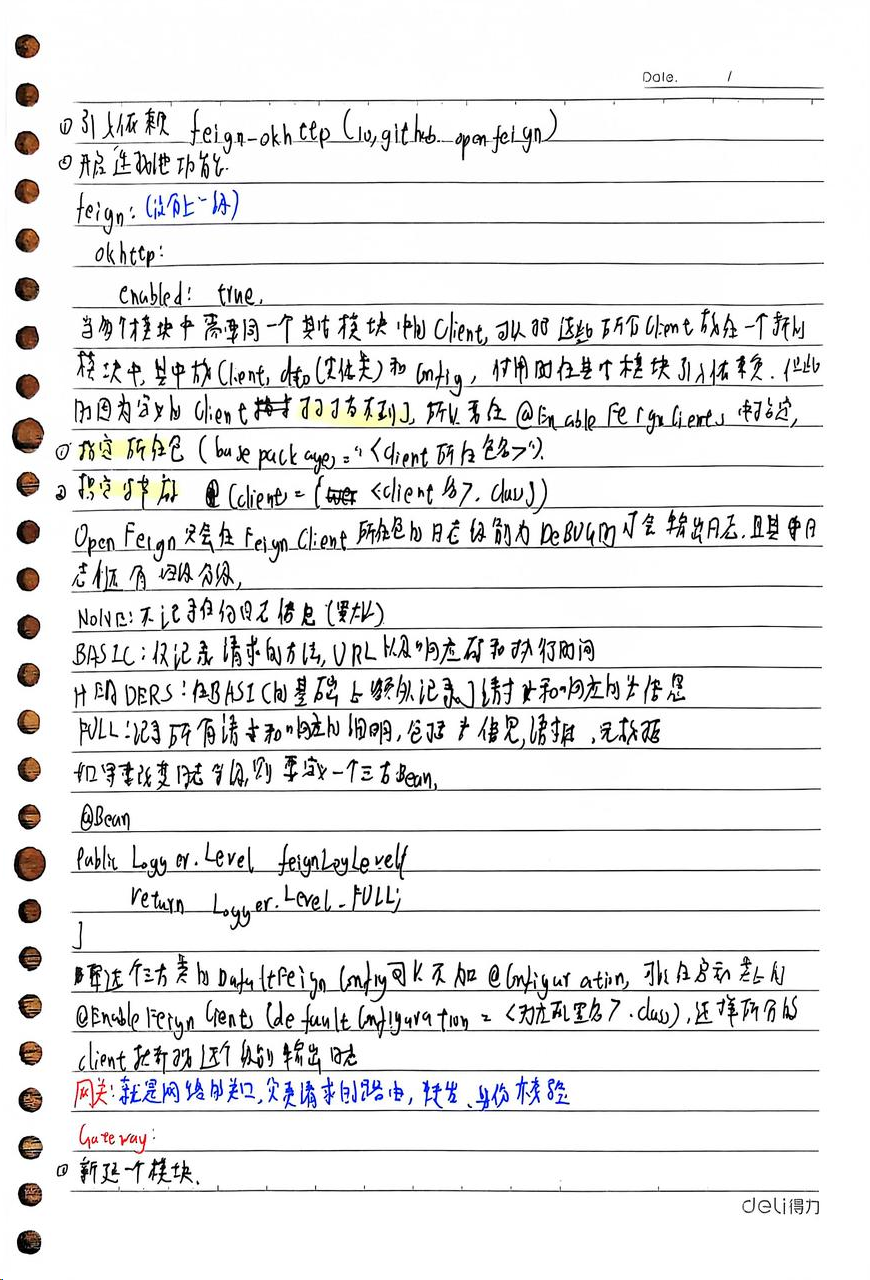 Date. /
① 引入依赖 feign-okhttp (io,github. openfeign)
② 开启连接池功能.
feign: (没有上一级)
okhttp:
enabled: true,
当多个模块中需要同一个其它模块中的Client,可以将这些所有Client放在一个新的
模块中,其中放Client, dto(实体类)和Config, 使用时在某个模块引入依赖.但此
时因为定义的Client 扫描不到了,所以要在@EnableFeignClients中指定,
① 指定所在包 (basepackages="<client所在包名>").
② 指定字节码 (client={<client名>.class})
OpenFeign只会在FeignClient所在包的日志级别为DEBUG时才会输出日志.且其中日
志有四级分级,
NONE:不记录任何日志信息(默认)
BASIC:仅记录请求的方法,URL以及响应码和执行时间
HEADERS:在BASIC的基础上额外记录了请求和响应的头信息
FULL:记录所有请求和响应的细明,包括头信息,请求体,元数据
如果要改变日志等级,则要定义一个三方Bean,
@Bean
Public Logger.Level feignLogLevel{
return Logger.Level.FULL;
}
这个三方类的DefaultFeignConfig可以不加@Configuration,可以在启动类上的
@EnableFeignClients(defaultConfiguration = <对应配置名>.class),这样所有的
client都按照这个级别输出日志
网关:就是网络的关口,负责请求的路由,转发、身份校验
Gateway:
① 新建一个模块.
deli得力